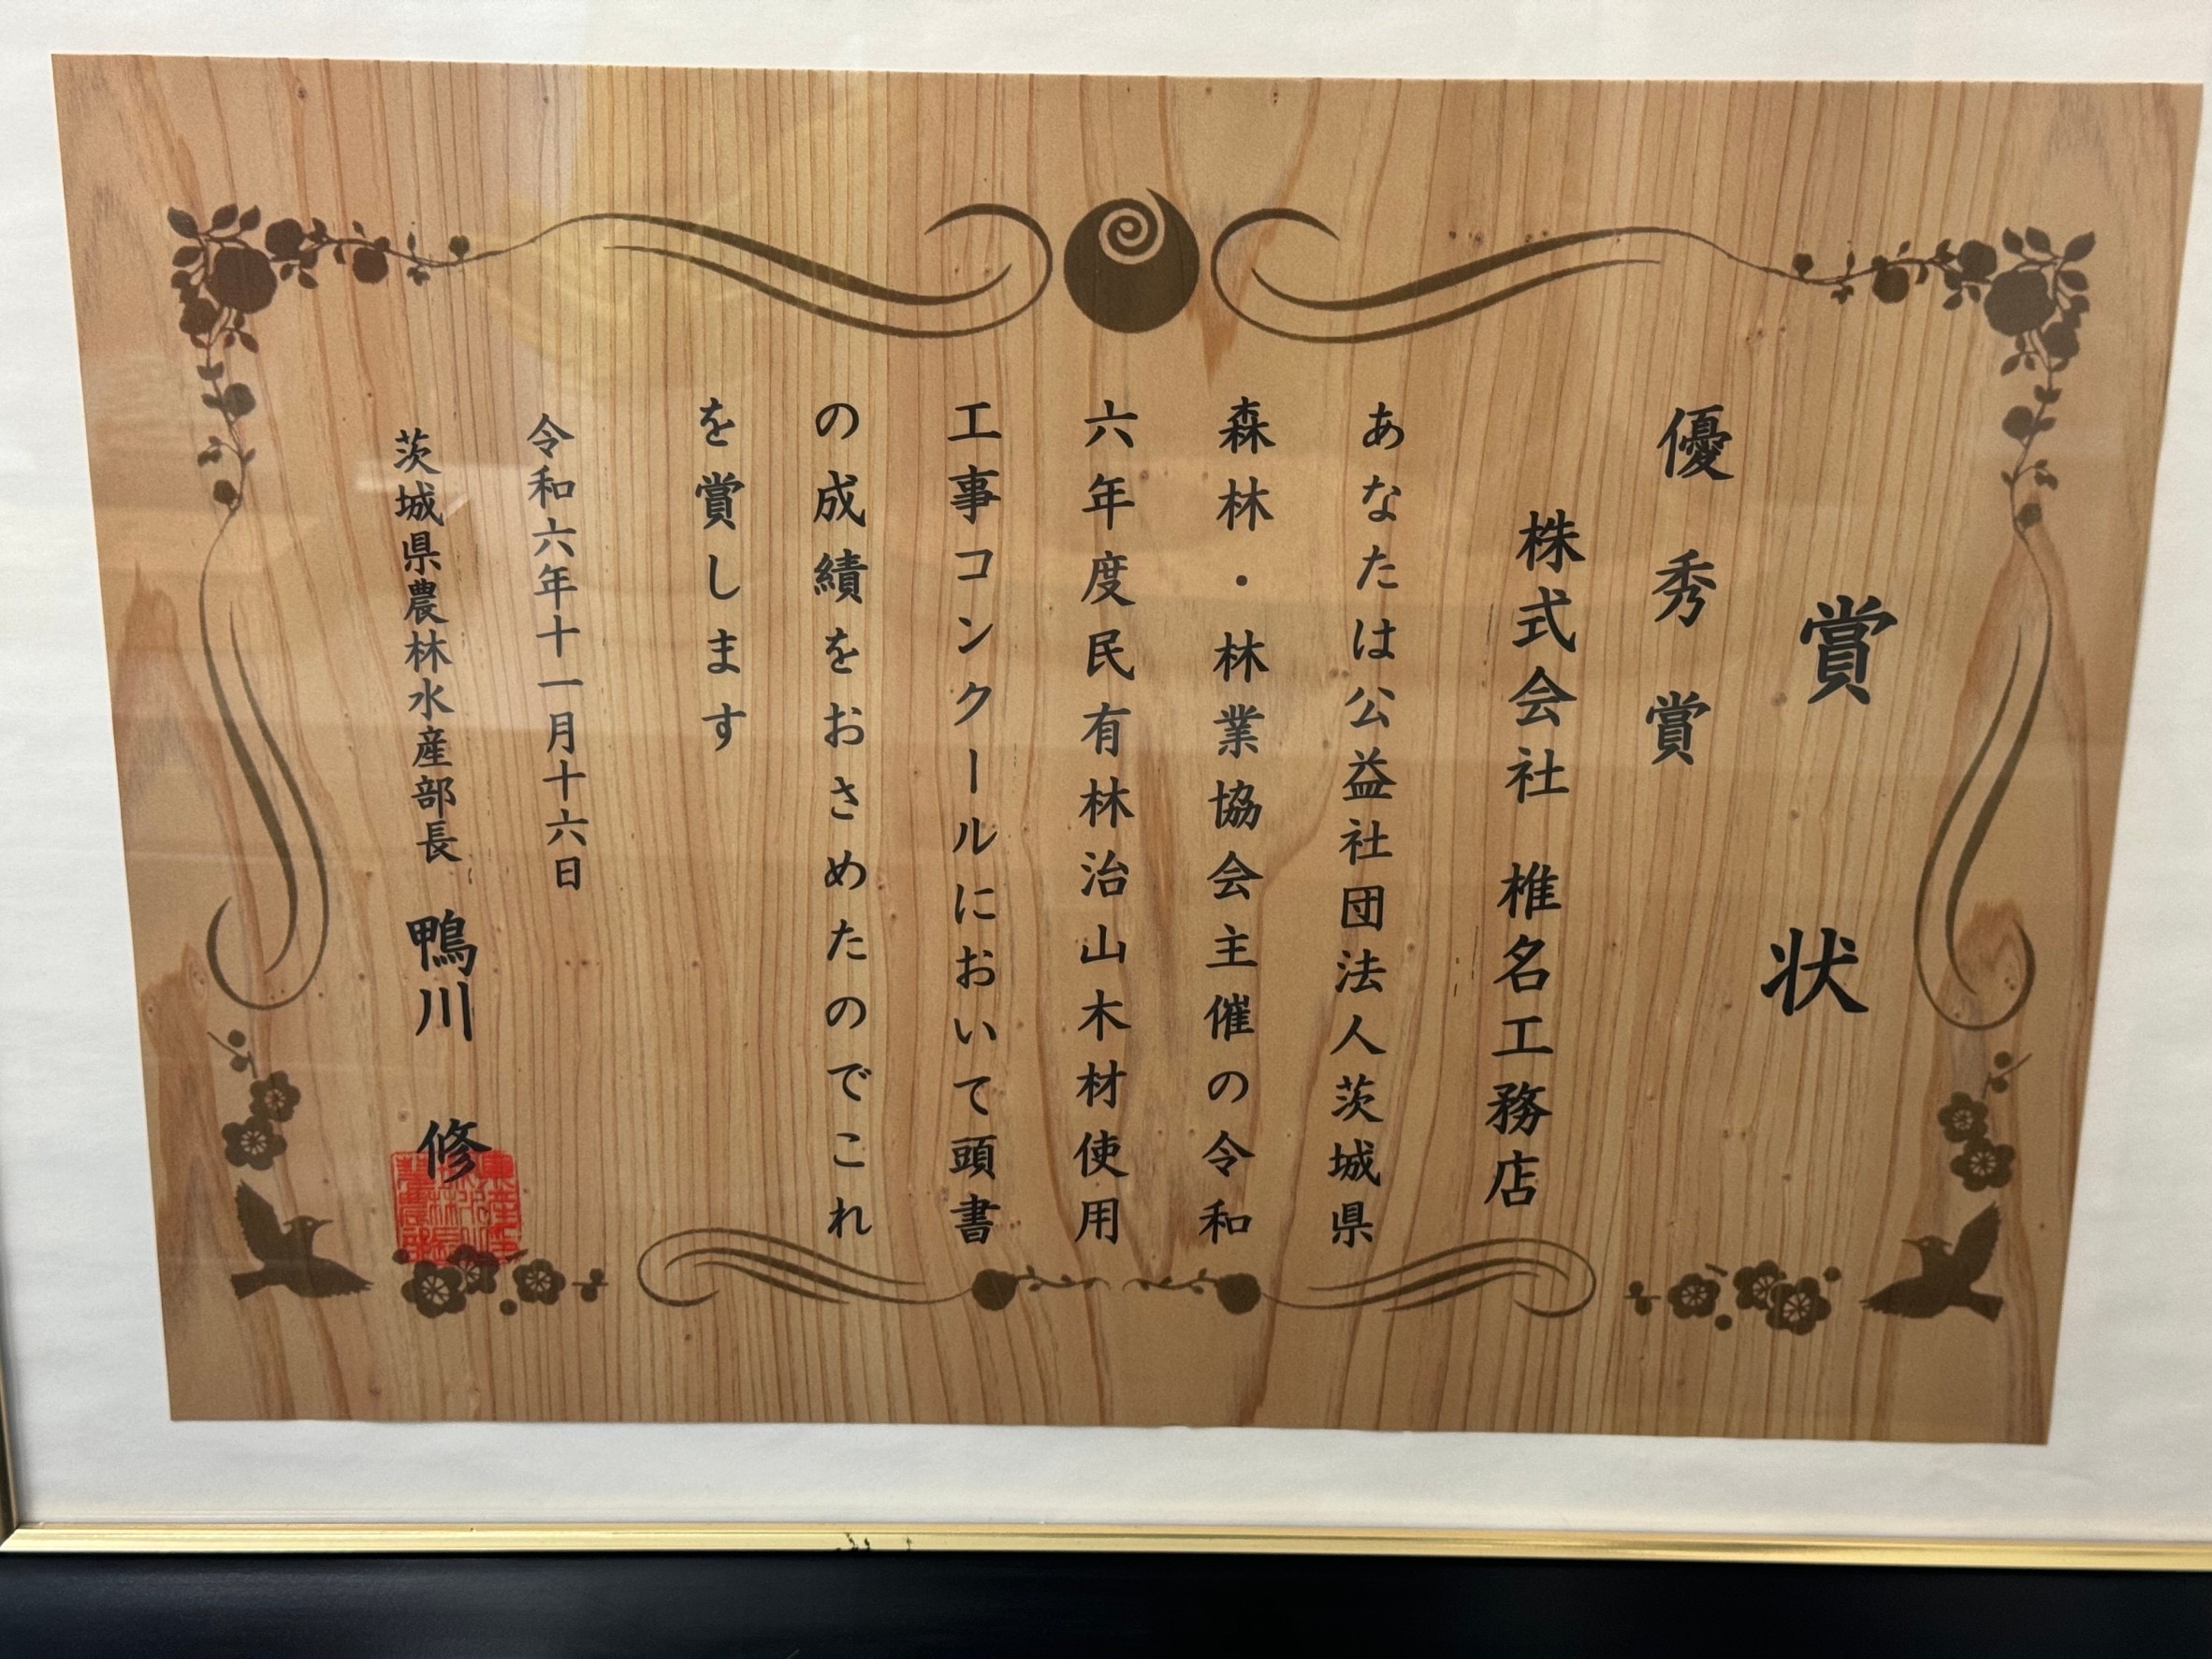 賞状
優秀賞
株式会社 椎名工務店
あなたは公益社団法人茨城県
森林・林業協会主催の令和
六年度民有林治山木材使用
工事コンクールにおいて頭書
の成績をおさめたのでこれ
を賞します
令和六年十一月十六日
茨城県農林水産部長 鴨川 修